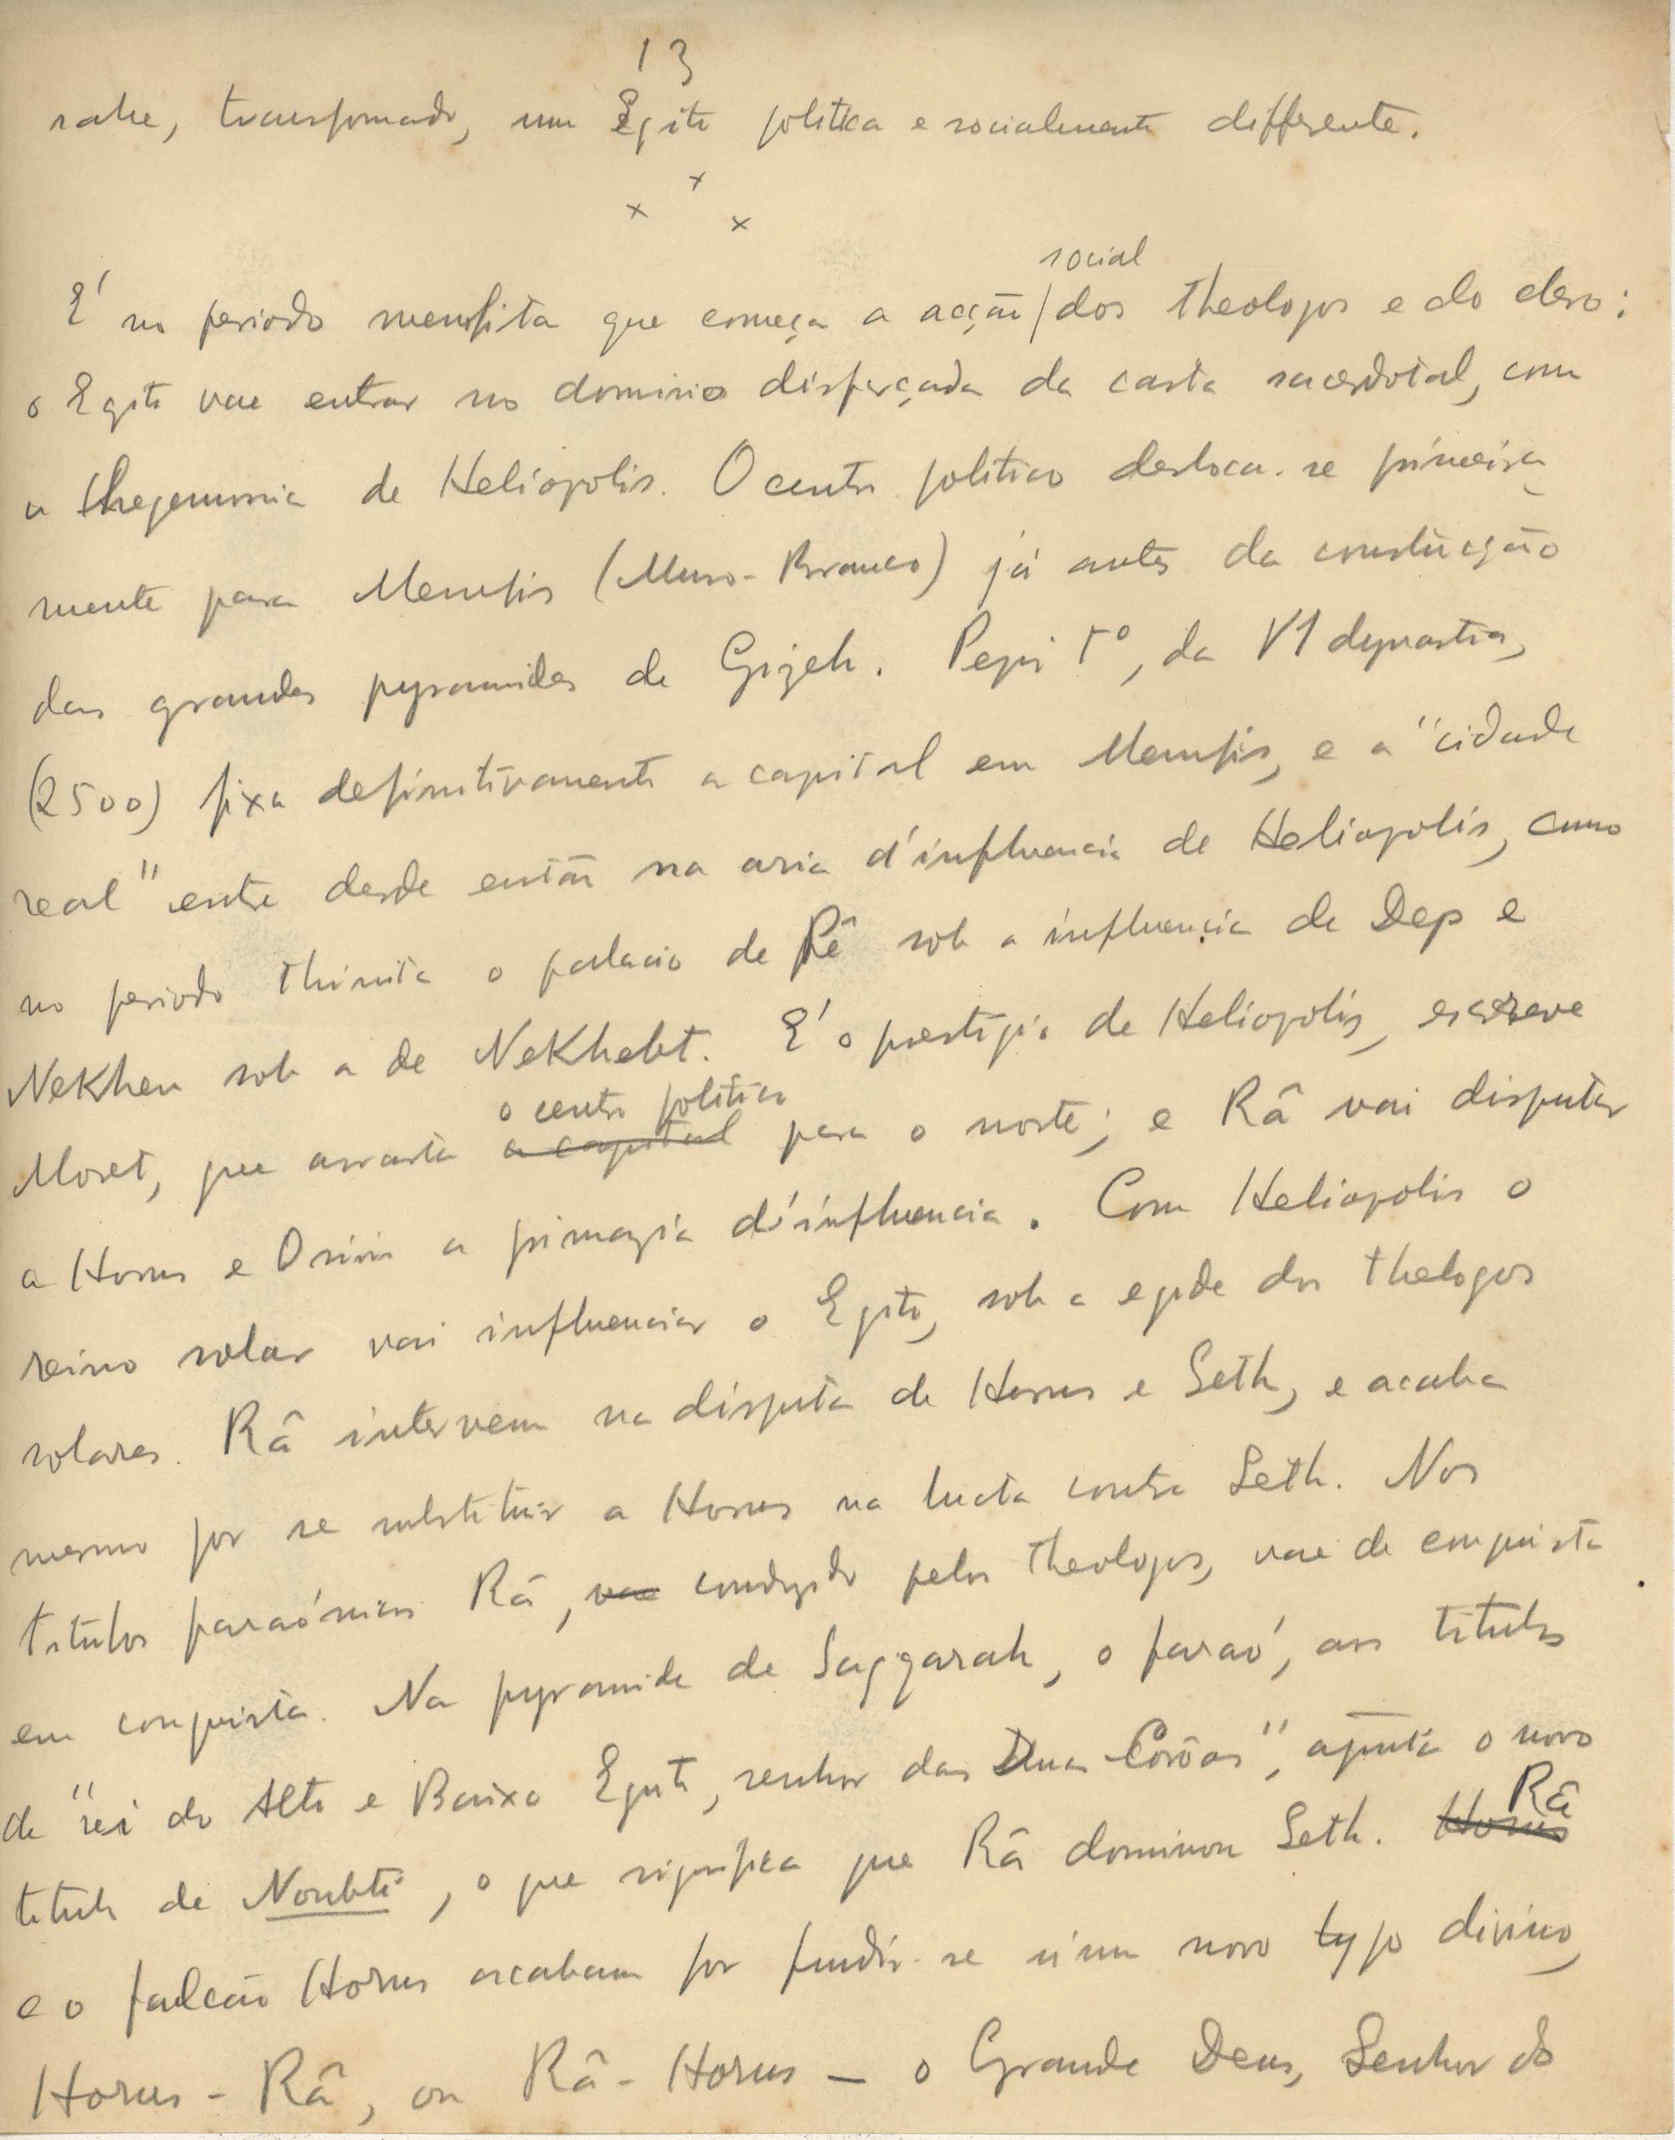 13
sahe, transformado, um Egito politica e socialmente differente.
x x x
social
E' no periodo memfita que começa a acção / dos theologos e do clero;
o Egito vae entrar no dominio disfarçada da casta sacerdotal, com
a hegemonia de Heliopolis. O centro politico desloca-se primeira
mente para Memfis (Muro-Branco) já antes da construcção
das grandes pyramides de Gizeh. Pepi 1º, da VI dynastia,
(2500) fixa definitivamente a capital em Memfis, e a "cidade
real" entre desde então na aria d'influencia de Heliopolis, como
no periodo thinita o palacio de Pê sob a influencia de Dep e
Nekhen sob a de Nekhebt. E' o prestigio de Heliopolis, escreve
o centro politico
Moret, que arrasta a capital para o norte; e Râ vai disputar
a Horus e Osiris a primazia d'influencia. Com Heliopolis o
reino solar vai influenciar o Egito, sob a egide dos theologos
solares. Râ intervem na disputa de Horus e Seth, e acaba
mesmo por se substituir a Horus na lucta contra Seth. Nos
titulos faraónicos Râ, vae conduzido pelos theologos, vae de conquista
em conquista. Na pyramide de Saqqarah, o faraó, aos titulos
de "rei do Alto e Baixo Egito, senhor das Duas Corôas", ajunta o novo
Râ
titulo de Noubti, o que significa que Râ dominou Seth. Horus
e o falcão Horus acabam por fundir-se n'um novo typo divino,
Horus-Râ, ou Râ-Horus — o Grande Deus, Senhor do